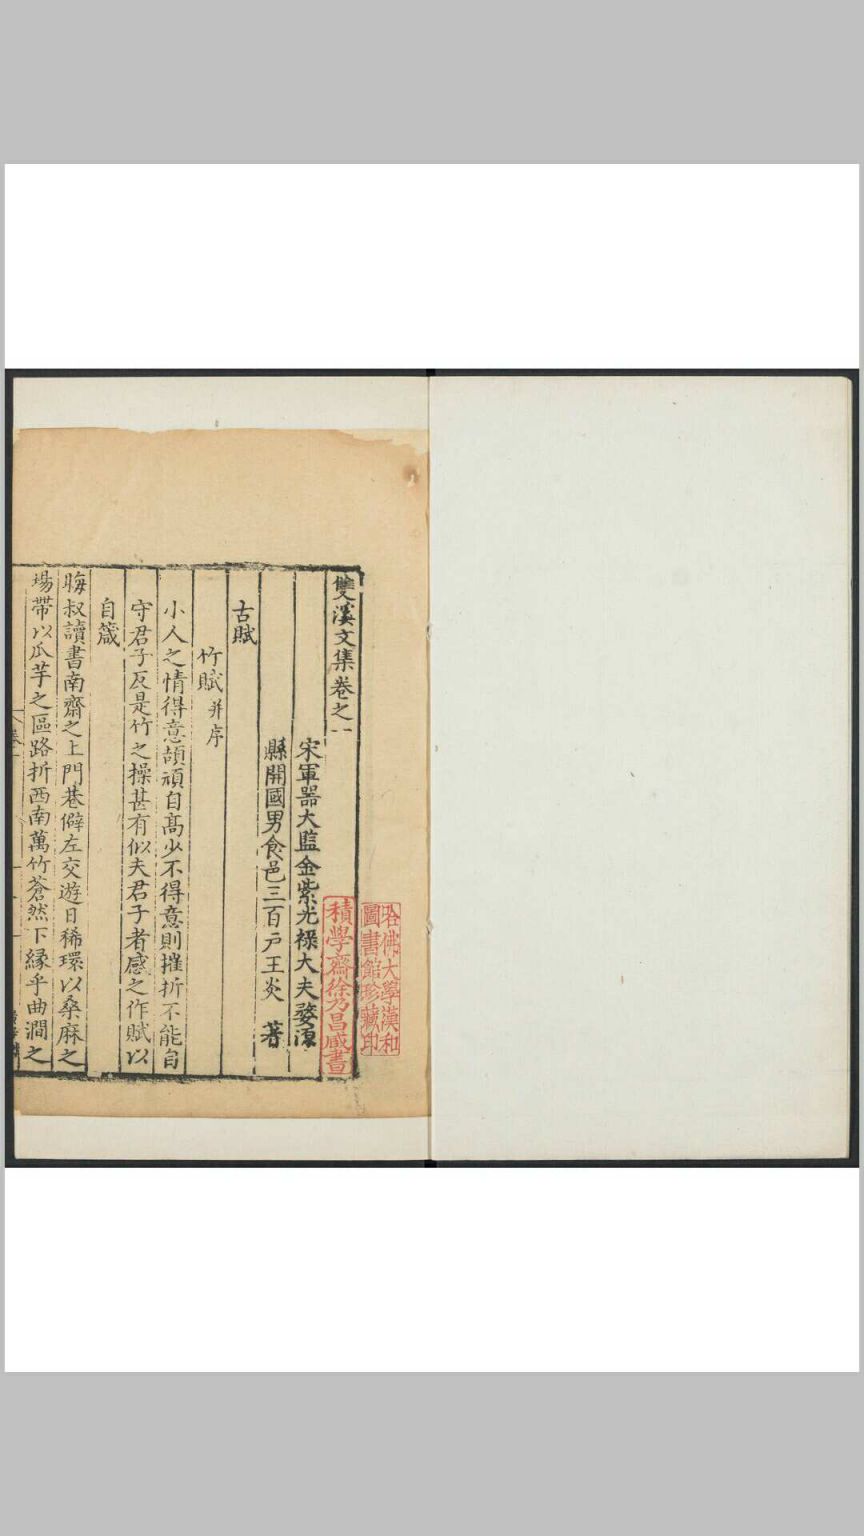 哈佛大學漢和
圖書館珍藏印
積學齋徐乃昌藏書
雙溪文集卷之一
宋軍器大監金紫光祿大夫婺源
縣開國男食邑三百户王炎 著
古賦
竹賦 并序
小人之情得意頡頏自髙少不得意則摧折不能自
守君子反是竹之操甚有似夫君子者感之作賦以
自箴
晦叔讀書南齋之上門巷僻左交遊日稀環以桑麻之
場帶以瓜芋之區路折西南萬竹蒼然下緣乎曲澗之